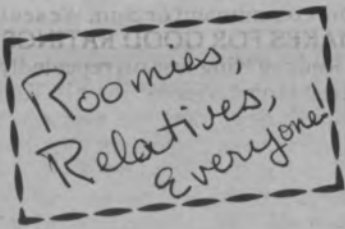 Roomies,
Relatives,
Everyone!